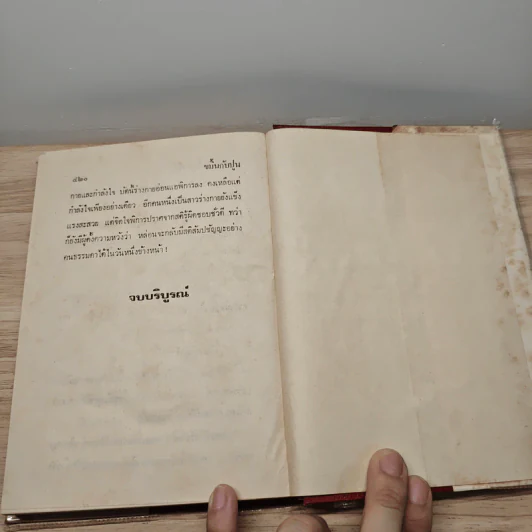 ๘๒๐
ขมิ้นกับปูน
กายและกำลังใจ บัดนี้ร่างกายอ่อนแอพิการลง คงเหลือแต่
กำลังใจเพียงอย่างเดียว อีกคนหนึ่งเป็นสาวร่างกายแข็ง
แรงสะสวย แต่จิตใจพิการปราศจากสติรู้ผิดชอบชั่วดี ทว่า
ก็ยังมีผู้ตั้งความหวังว่า หล่อนจะกลับมีสติสัมปชัญญะอย่าง
คนธรรมดาได้ในวันหนึ่งข้างหน้า !
จบบริบูรณ์